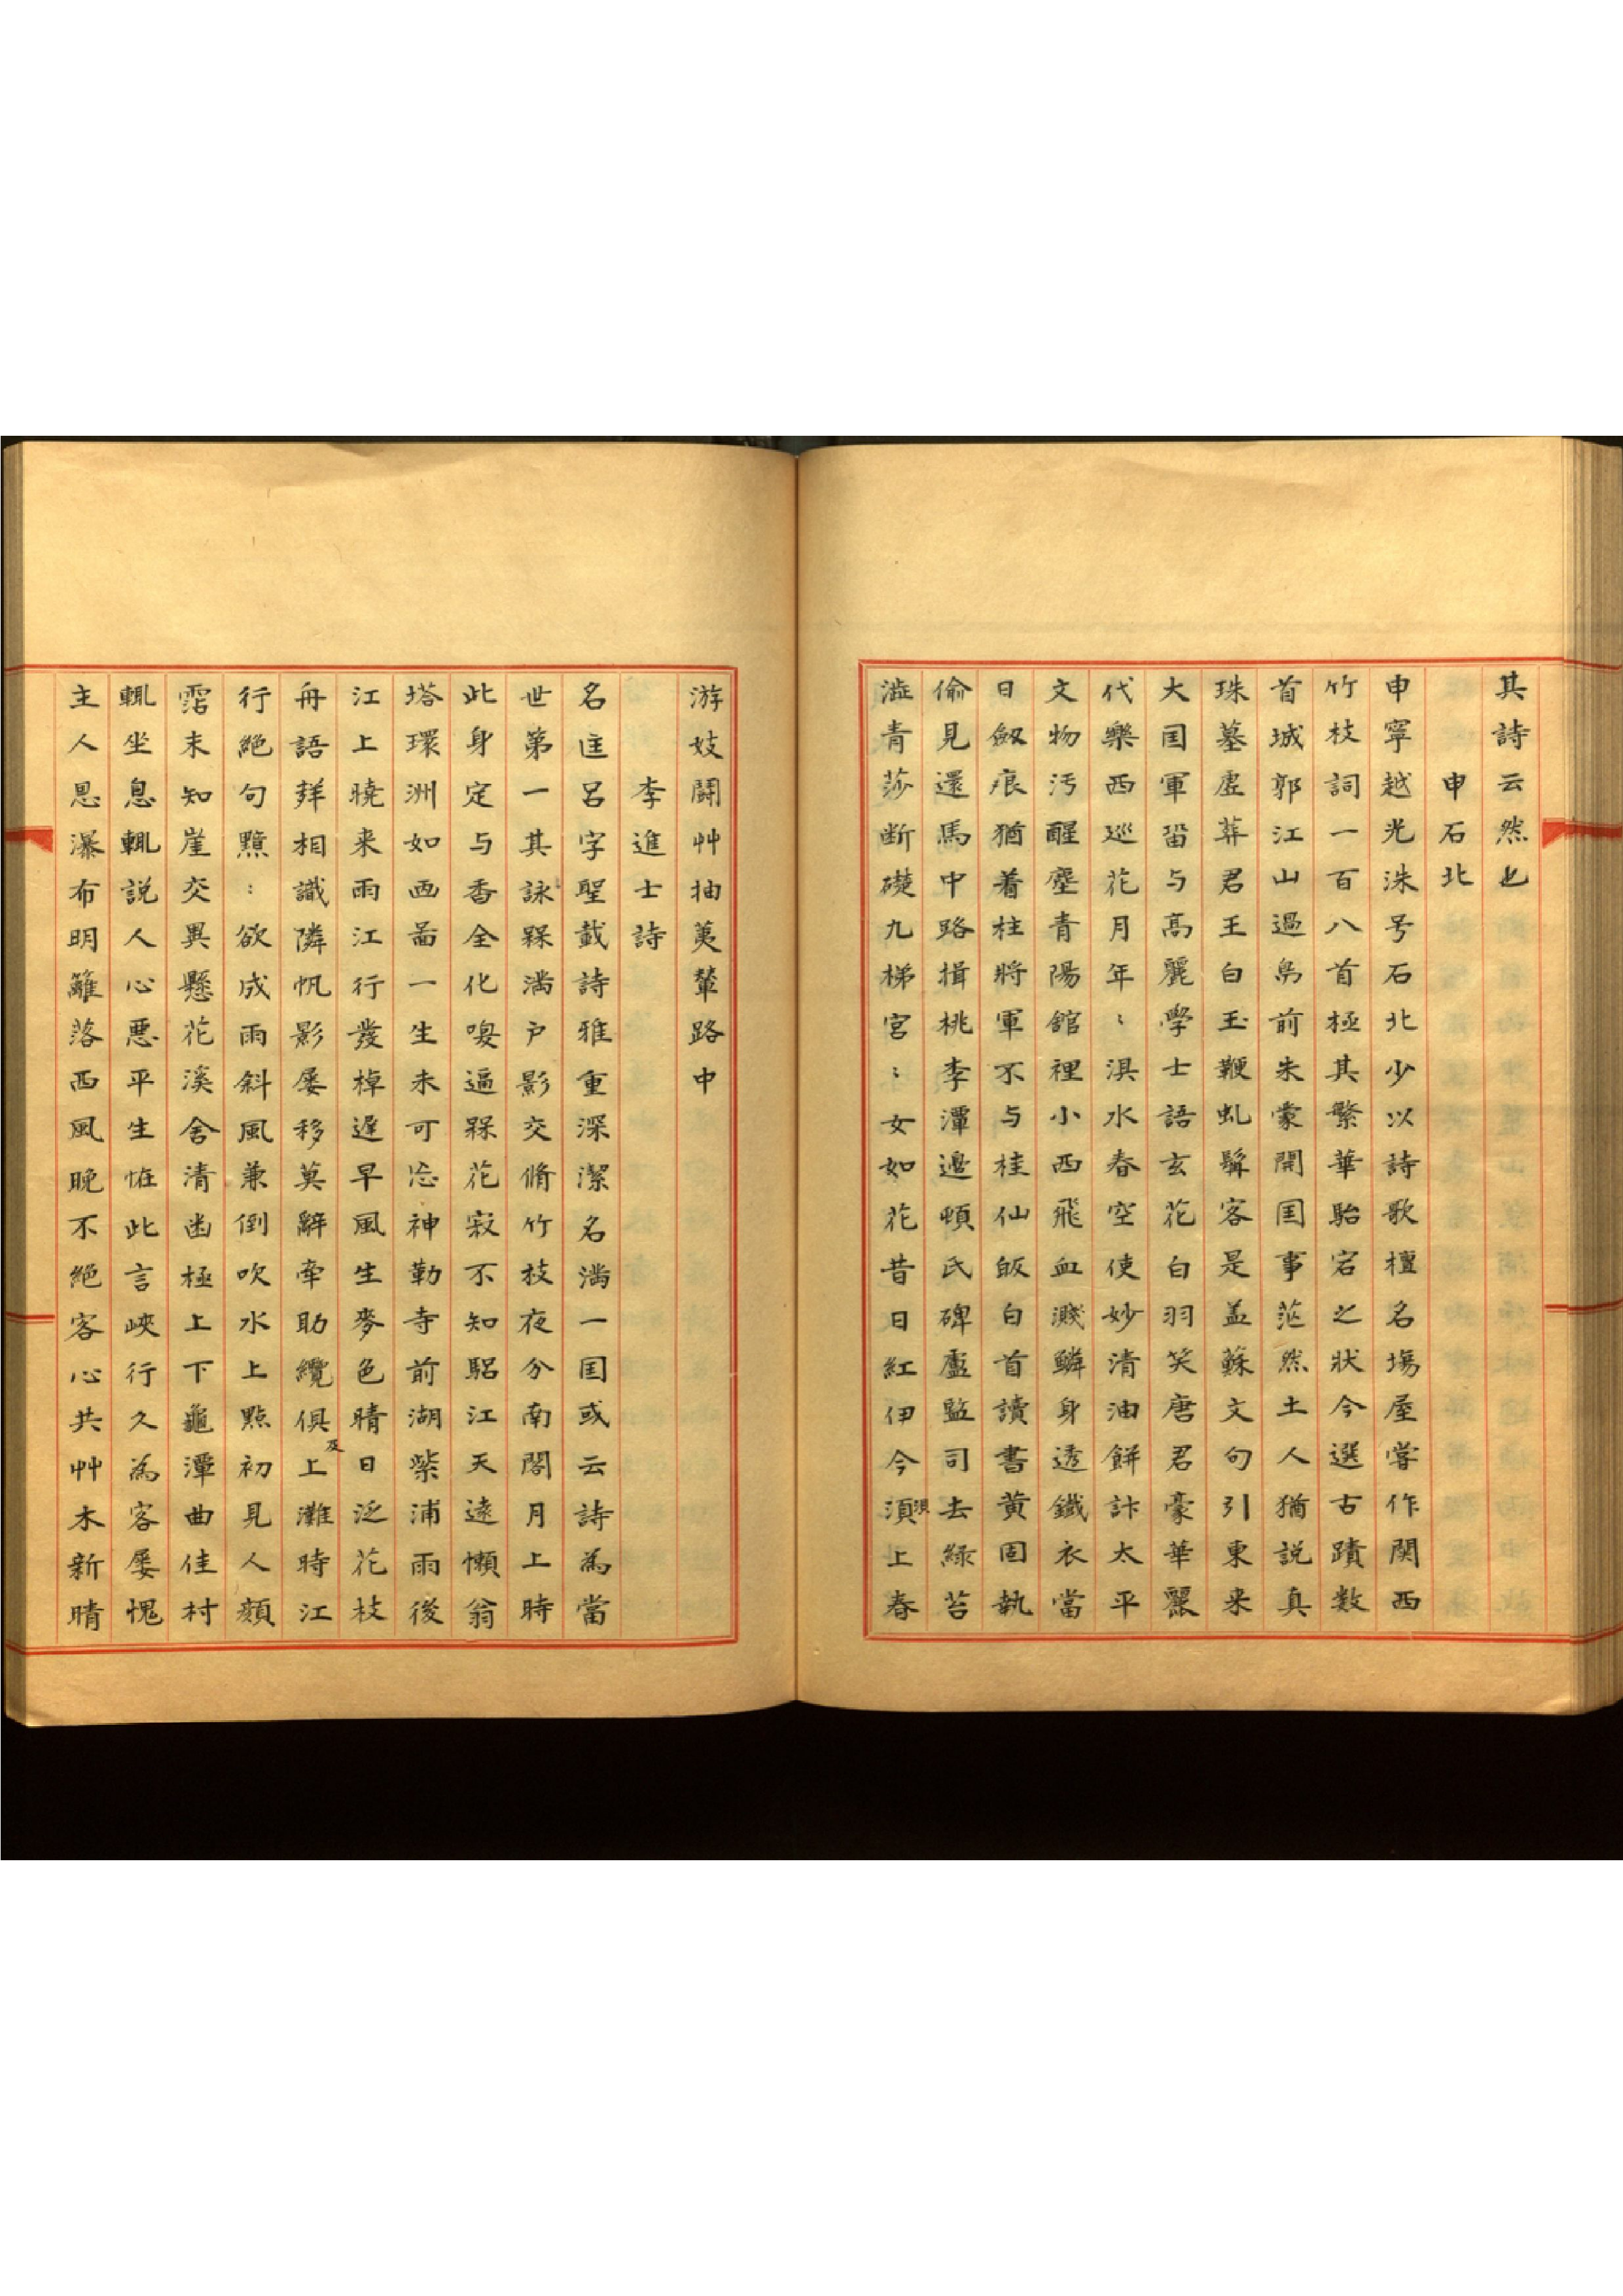 其詩云然也
申石北
申寧越光洙号石北少以詩歌檀名塲屋嘗作関西
竹枝詞一百八首極其繁華駘宕之狀今選古蹟数
首城郭江山過鳥前朱蒙開囯事茫然土人猶説真
珠墓虗葬君王白玉鞭虬髯客是盖蘇文句引東来
大囯軍畄与高麗學士語玄花白羽笑唐君豪華麗
代樂西巡花月年〻淇水春空使妙清油餅計太平
文物汚醒塵青陽舘裡小西飛血濺鱗身透鐵衣當
日劒痕猶着柱將軍不与桂仙皈白首讀書黄固執
偷見還馬中路揖桃李潭邉頓氏碑盧監司去緑苔
澁青莎断礎九梯宮〻女如花昔日紅伊今湏浿上春
游妓鬪艸抽荑輦路中
李進士詩
名匡呂字聖載詩雅重深潔名満一囯或云詩為當
世第一其詠槑満户影交脩竹枝夜分南閣月上時
此身定与香全化嗅逼槑花寂不知驪江天遠懒翁
塔環洲如画啚一生未可忘神勒寺前湖柴浦雨後
江上曉来雨江行發棹遅早風生麥色晴日泛花枝
舟語羣相識隣帆影屡移莫辭牽助纜俱及上灘時江
行絶句黯〻欲成雨斜風兼倒吹水上點初見人顔
霑未知崖交異懸花溪舍清幽極上下龜潭曲佳村
輒坐息輒説人心悪平生恠此言峽行久為客屡愧
主人恩瀑布明籬落西風晚不絶客心共艸木新晴